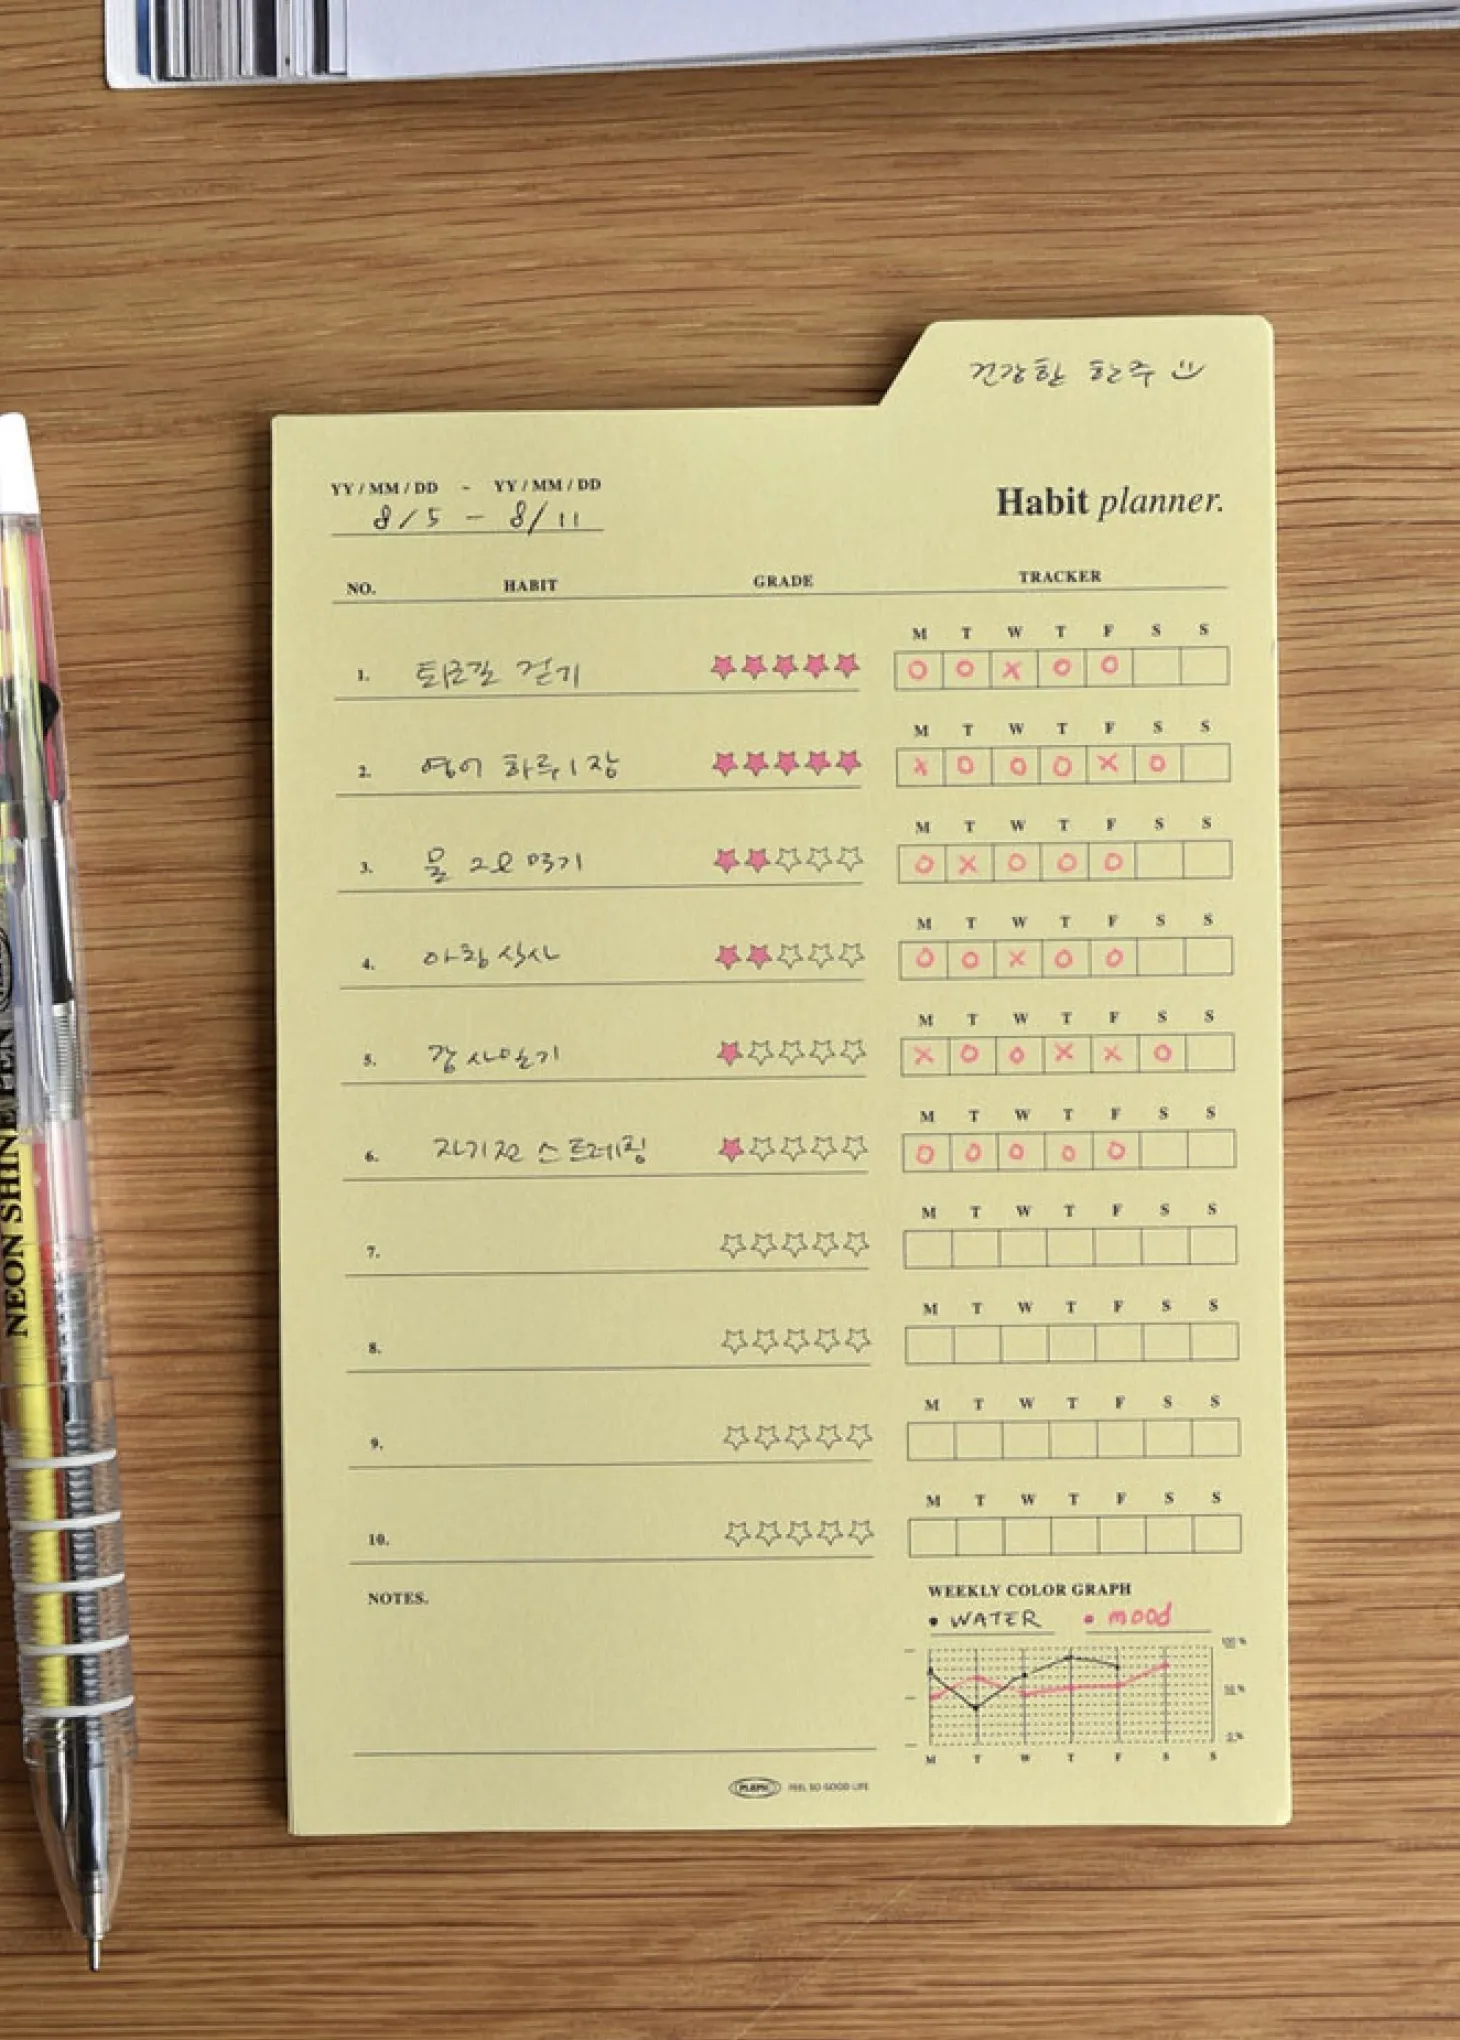 건강한 한주
YY / MM / DD ~ YY / MM / DD
8/5 - 8/11
Habit planner.
NO. HABIT GRADE TRACKER
M T W T F S S
1. 퇴근길 걷기 O O X O O
M T W T F S S
2. 영어 하루 1장 X O O O X O
M T W T F S S
3. 물 2L 마시기 O X O O O
M T W T F S S
4. 아침식사 O O X O O
M T W T F S S
5. 감사일기 X O O X X O
M T W T F S S
6. 자기전 스트레칭 O O O O O
M T W T F S S
7.
M T W T F S S
8.
M T W T F S S
9.
M T W T F S S
10.
NOTES.
WEEKLY COLOR GRAPH
• WATER • mood
100 %
50 %
0 %
M T W T F S S
PLEPLE FEEL SO GOOD LIFE
NEON SHINE PEN